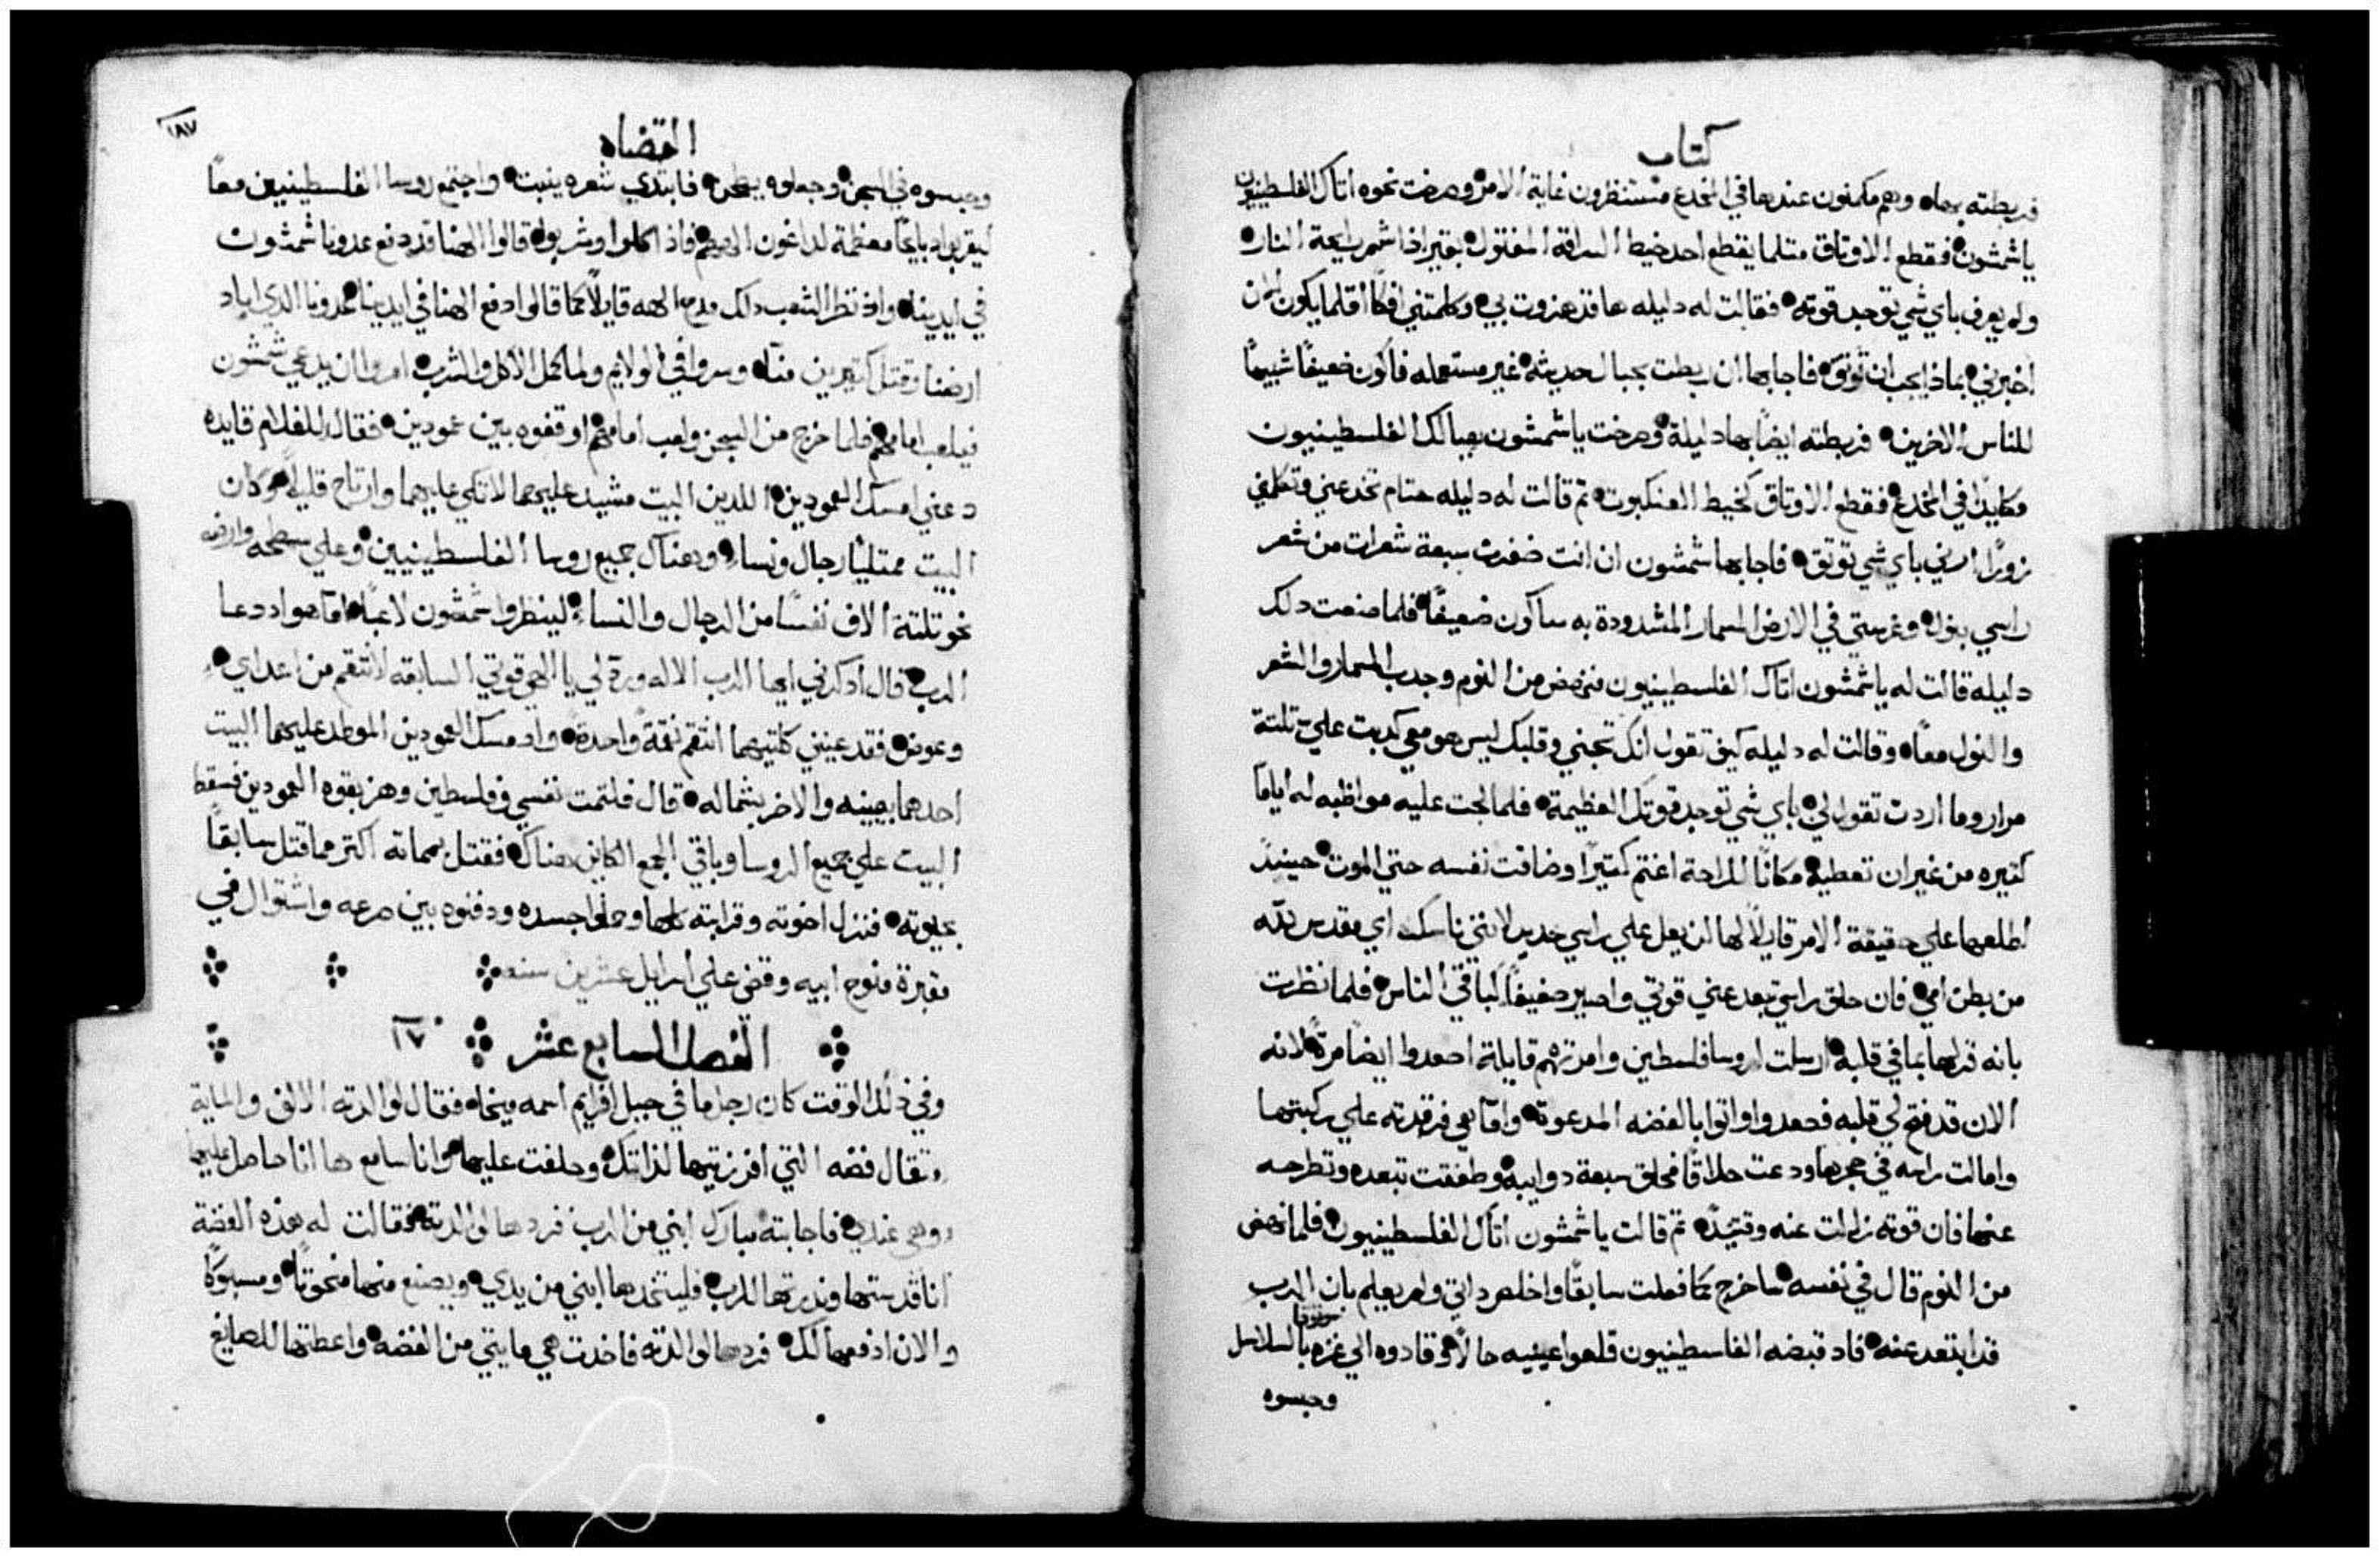 كتاب
فربطته بها وهم مكمنون عندها في المخدع مستنظرون غاية الامر وصرخت نحوه اتاك الفلسطينيون
يا شمشون فقطع الاوتاق متلما يقطع احد خيط السراقة المفتول بحقير اذا شم رايحة النار
ولم يعرف باي شي توجد قوته فقالت له دليله ها قد هزوت بي وكلمتني افكًا اقلما يكون الان
اخبرني بماذا يجب ان توتق فاجابها ان ربطت بحبال حديثه غير مستعمله فاكون ضعيفًا شبيهًا
للناس الاخرين فربطته ايضًا بها دليلة وصرخت يا شمشون الفلسطينيون
في المخدع فقطع الاوتاق كخيط العنكبوت تم قالت له دليله حتام تخدعني وتكلمني
زورًا ارني باي شي توتق فاجابها شمشون ان انت ضفرت سبعة شعرات من شعر
راسي بنول وغرستي في الارض المسمار المشدودة به ساكون ضعيفًا فلما صنعت دلك
دليله قالت له يا شمشون اتاك الفلسطينيون فنهض من النوم وجدب المسمار والشعر
والنول معًا وقالت له دليله كيف تقول انك تحبني وقلبك ليس هو معي كدبت علي تلتة
مرار وما اردت تقول لي باي شي توجد قوتك العظيمة فلما لجت عليه مواظبه له ايامًا
كتيره من غير ان تعطيه مكانًا للراحة اغتم كتيرًا وضاقت نفسه حتي الموت حينيدً
اطلعها علي حقيقة الامر قايلًا لها لن يعل علي راسي حديد لانني ناسك اي مقدس لله
من بطن امي فان حلق راسي تبعد عني قوتي واصير ضعيفًا كباقي الناس فلما نظرت
بانه قد لها بما في قلبه ارسلت لروسا فلسطين وامرتهم قايلة اصعدوا ايضًا مرةً لانه
الان قد فتح لي قلبه فصعدوا واتوا بالفضه المدعوة واما هي فرقدته علي ركبتيها
وامالت راسه في حجرها ودعت حلاقًا فحلق سبعة دوايبه وطفقت تبعده وتطرحه
عنها فان قوته زالت عنه وقتيدً تم قالت يا شمشون اتاك الفلسطينيون فلما نهض
من النوم قال في نفسه ساخرج كما فعلت سابقًا واخلص داتي ولم يعلم بان الرب
قد ابتعد عنه فاد قبضه الفلسطينيون قلعوا عينيه حالًا وقادوه الي غزه موتوقا بالسلاسل
وحبسوه
القضاه
١٨٧
وحبسوه في السجن وجعلوه يطحن فابتدي شعره ينبت واجتمع روسا الفلسطينيين معًا
ليقربوا دبايحًا معظمة لداغون الههم فاذ اكلوا وشربوا قالوا الهنا قد دفع عدونا شمشون
في ايدينا واذ نظر الشعب دلك مدح الهه قايلًا كما قالوا دفع الهنا في ايدينا عدونا الدي اباد
ارضنا وقتل كتيرين منّا وسروا في الولايم ولما كمل الاكل والشرب امروا ان يدعي شمشون
فيلعب امامهم فلما خرج من السجن ولعب امامهم اوقفوه بين عمودين فقال للغلام قايده
دعني امسك العمودين اللدين البيت مشيد عليهما لاتكي عليهما وارتاح قليلًا وكان
البيت ممتليًا رجال ونساء وهناك جميع روسا الفلسطينيين وعلي سطحه وارضه
نحو تلتة الاف نفسًا من الرجال والنساء لينظروا شمشون لاعبًا امّا هو اد دعا
الرب قال ادكرني ايها الرب الاله ورد لي يا الهي قوتي السابقه لانتقم من اعداي
وعوض فقد عينيي كليهما انتقم نقمةً واحدةً واد مسك العمودين الموطد عليهما البيت
احدهما بيمينه والاخر بشماله قال فلتمت نفسي وفلسطين وهز بقوه العمودين فسقط
البيت علي جميع الروسا وباقي الجمع الكاين هناك فقتل بمماته اكتر مما قتل سابقًا
بحيوته فنزل اخوته وقرابته كلها وحملوا جسده ودفنوه بين صرعه واشتوال في
مقبرة منوح ابيه وقضي علي اسرايل عشرين سنه
الفصل السابع عشر ١٧
وفي ذلك الوقت كان رجل ما في جبل افرايم اسمه ميخاه فقال لوالدته الالف والماية
متقال فضه التي افرزتيها لذاتك وحلفت عليها وانا سامع ها انا حاصل عليها
وهي عندي فاجابته مبارك ابني من الرب فردها لوالدته فقالت له هذه الفضة
انا قدستها وندرتها للرب فليتخدها ابني من يدي ويصنع منها منحوتًا ومسبوكًا
والان ادفعها لك فردها لوالدته فاخدت هي مايتي من الفضه واعطتها للصايغ